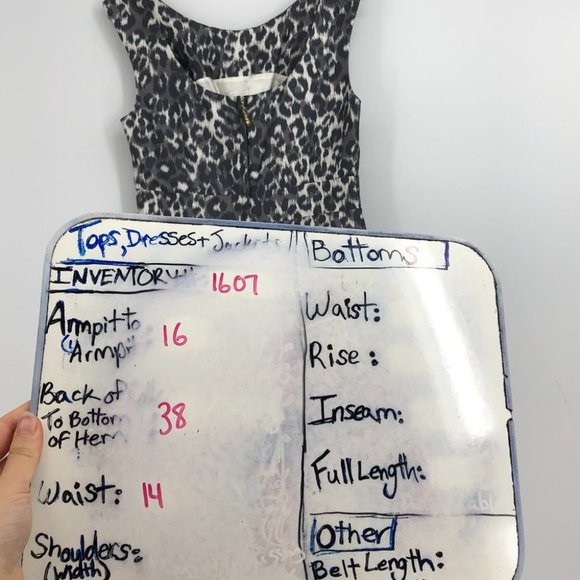 Tops, Dresses + Jackets
INVENTORY 1607
Armpit to
Armpit: 16
Back of
To Bottom
of Hem 38
Waist: 14
Shoulders:
(width)
Bottoms
Waist:
Rise:
Inseam:
Full Length:
Other
Belt Length: